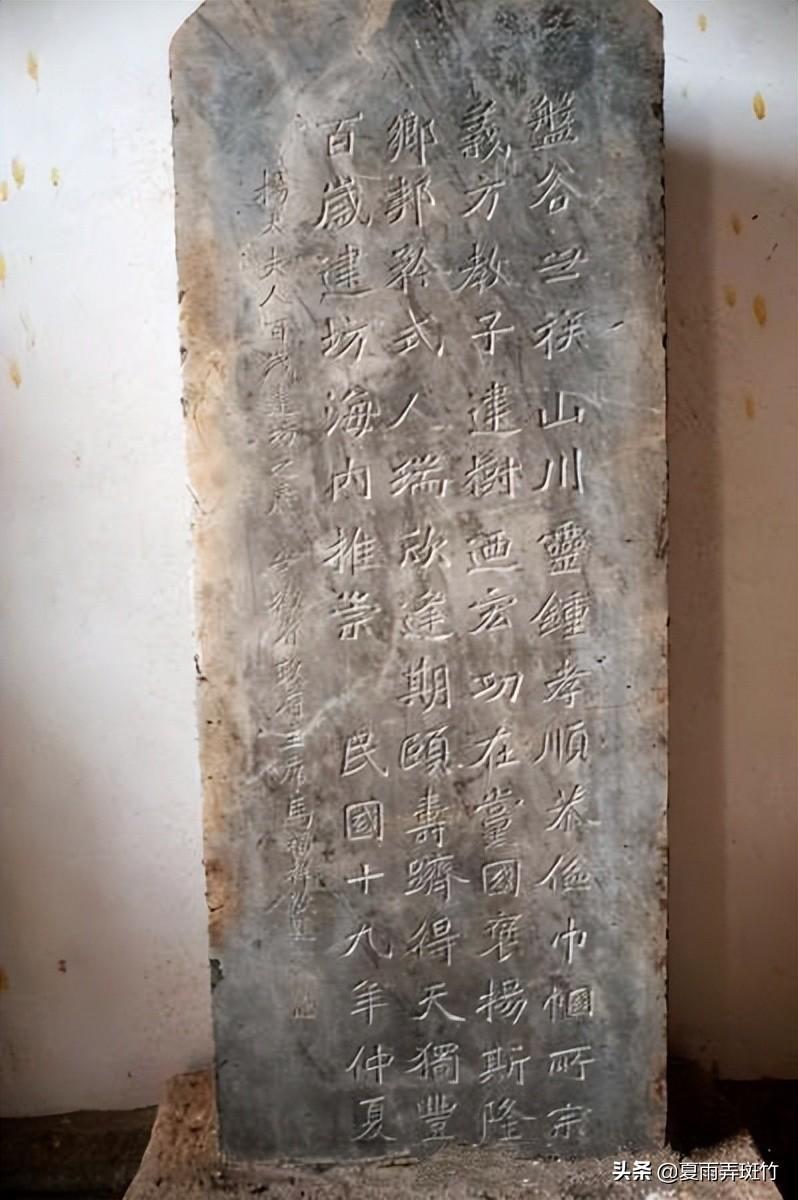 盤谷世族山川靈鍾孝順恭儉巾幗所宗
義方教子建樹迺宏功在黨國褒揚斯隆
鄉邦矜式人瑞欣逢期頤壽躋得天獨豐
百歲建坊海内推崇 民國十九年仲夏
楊太夫人百歲建坊之慶 安徽省政府主席馬福祥
头条 @夏雨弄斑竹